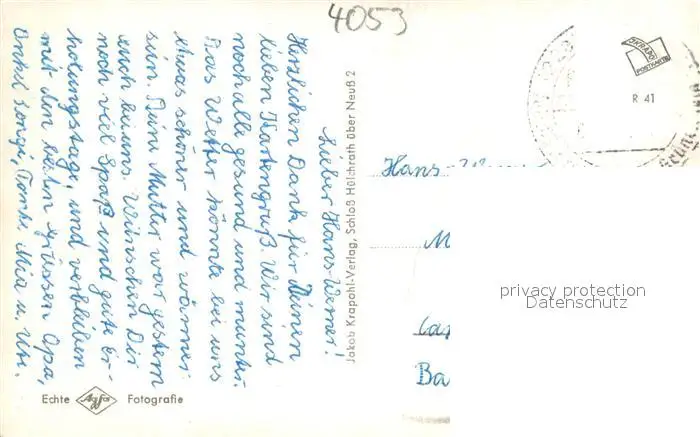 4053
Lieber Hans-Werner!
Herzlichen Dank für Deinen
lieben Kartengruß. Wir sind
noch alle gesund und munter.
Das Wetter könnte bei uns
etwas schöner und wärmer
sein. Deine Mutter war gestern
auch bei uns. Wünschen Dir
noch viel Spaß und gute Er-
holungstage, und verbleiben
mit den besten Grüssen Opa,
Onkel Tante Mia u. Ute.
Jakob Krapohl-Verlag, Schloß Hülchrath über Neuß 2
KRAPO
POSTKARTE
R 41
Hans-W
M
Ba
privacy protection
Datenschutz
Echte Agfa Fotografie